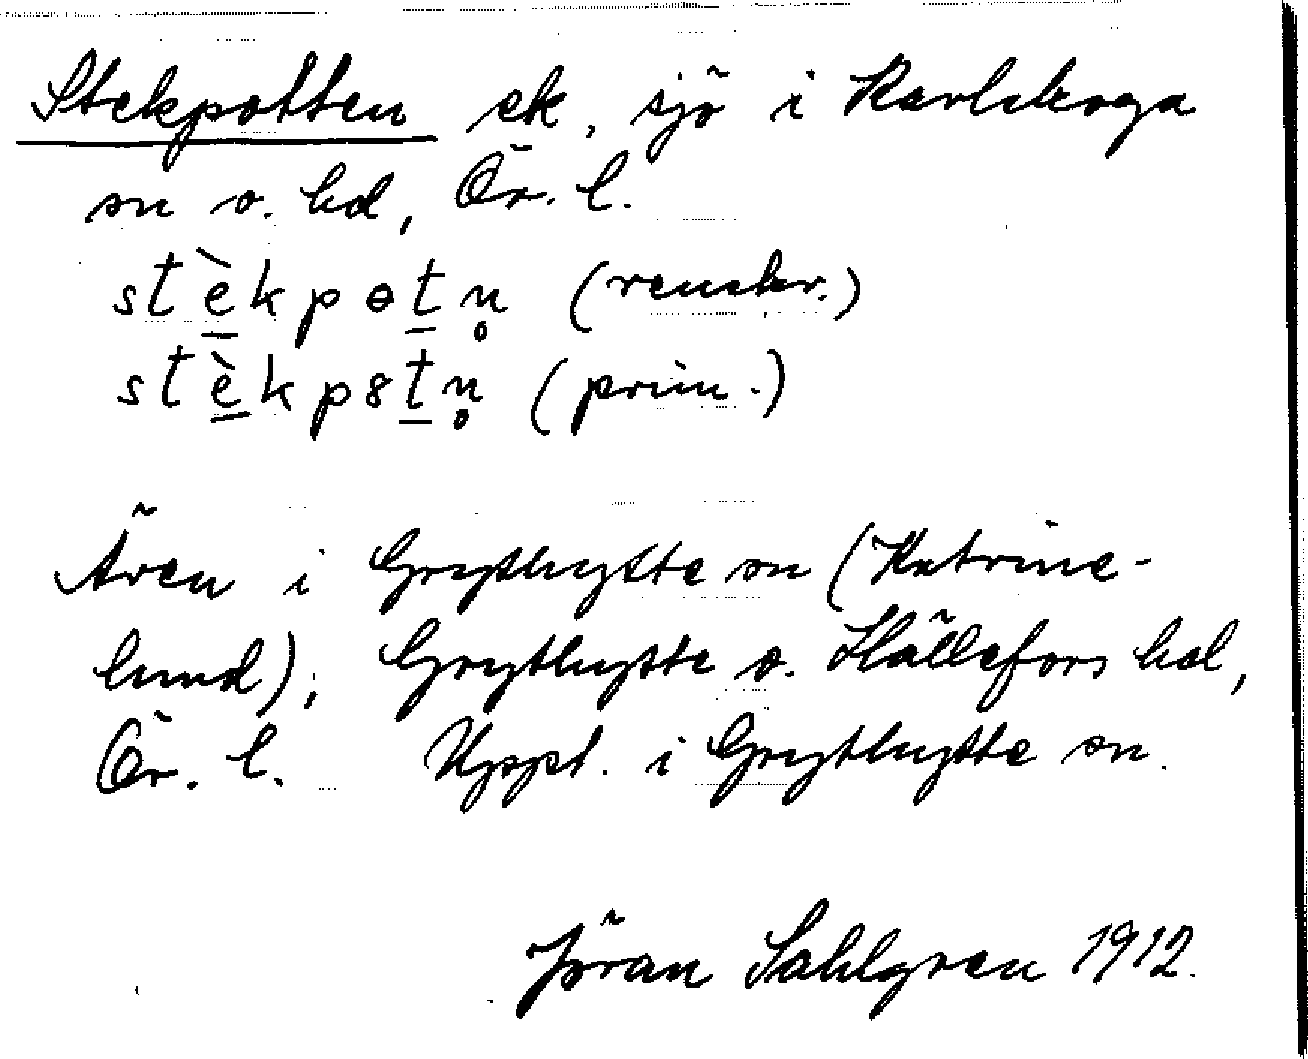 Stekpotten ek, sjö i Karlskoga
sn o. hd, Ör. l.
stè̲kpɵt̲n̥ (renskr.)
stè̲kp8t̲n̥ (prim.)
Även i Grythytte sn (Katrine-
lund), Grythytte o. Hällefors hd,
Ör. l. Uppt. i Grythytte sn.
Jöran Sahlgren 1912.